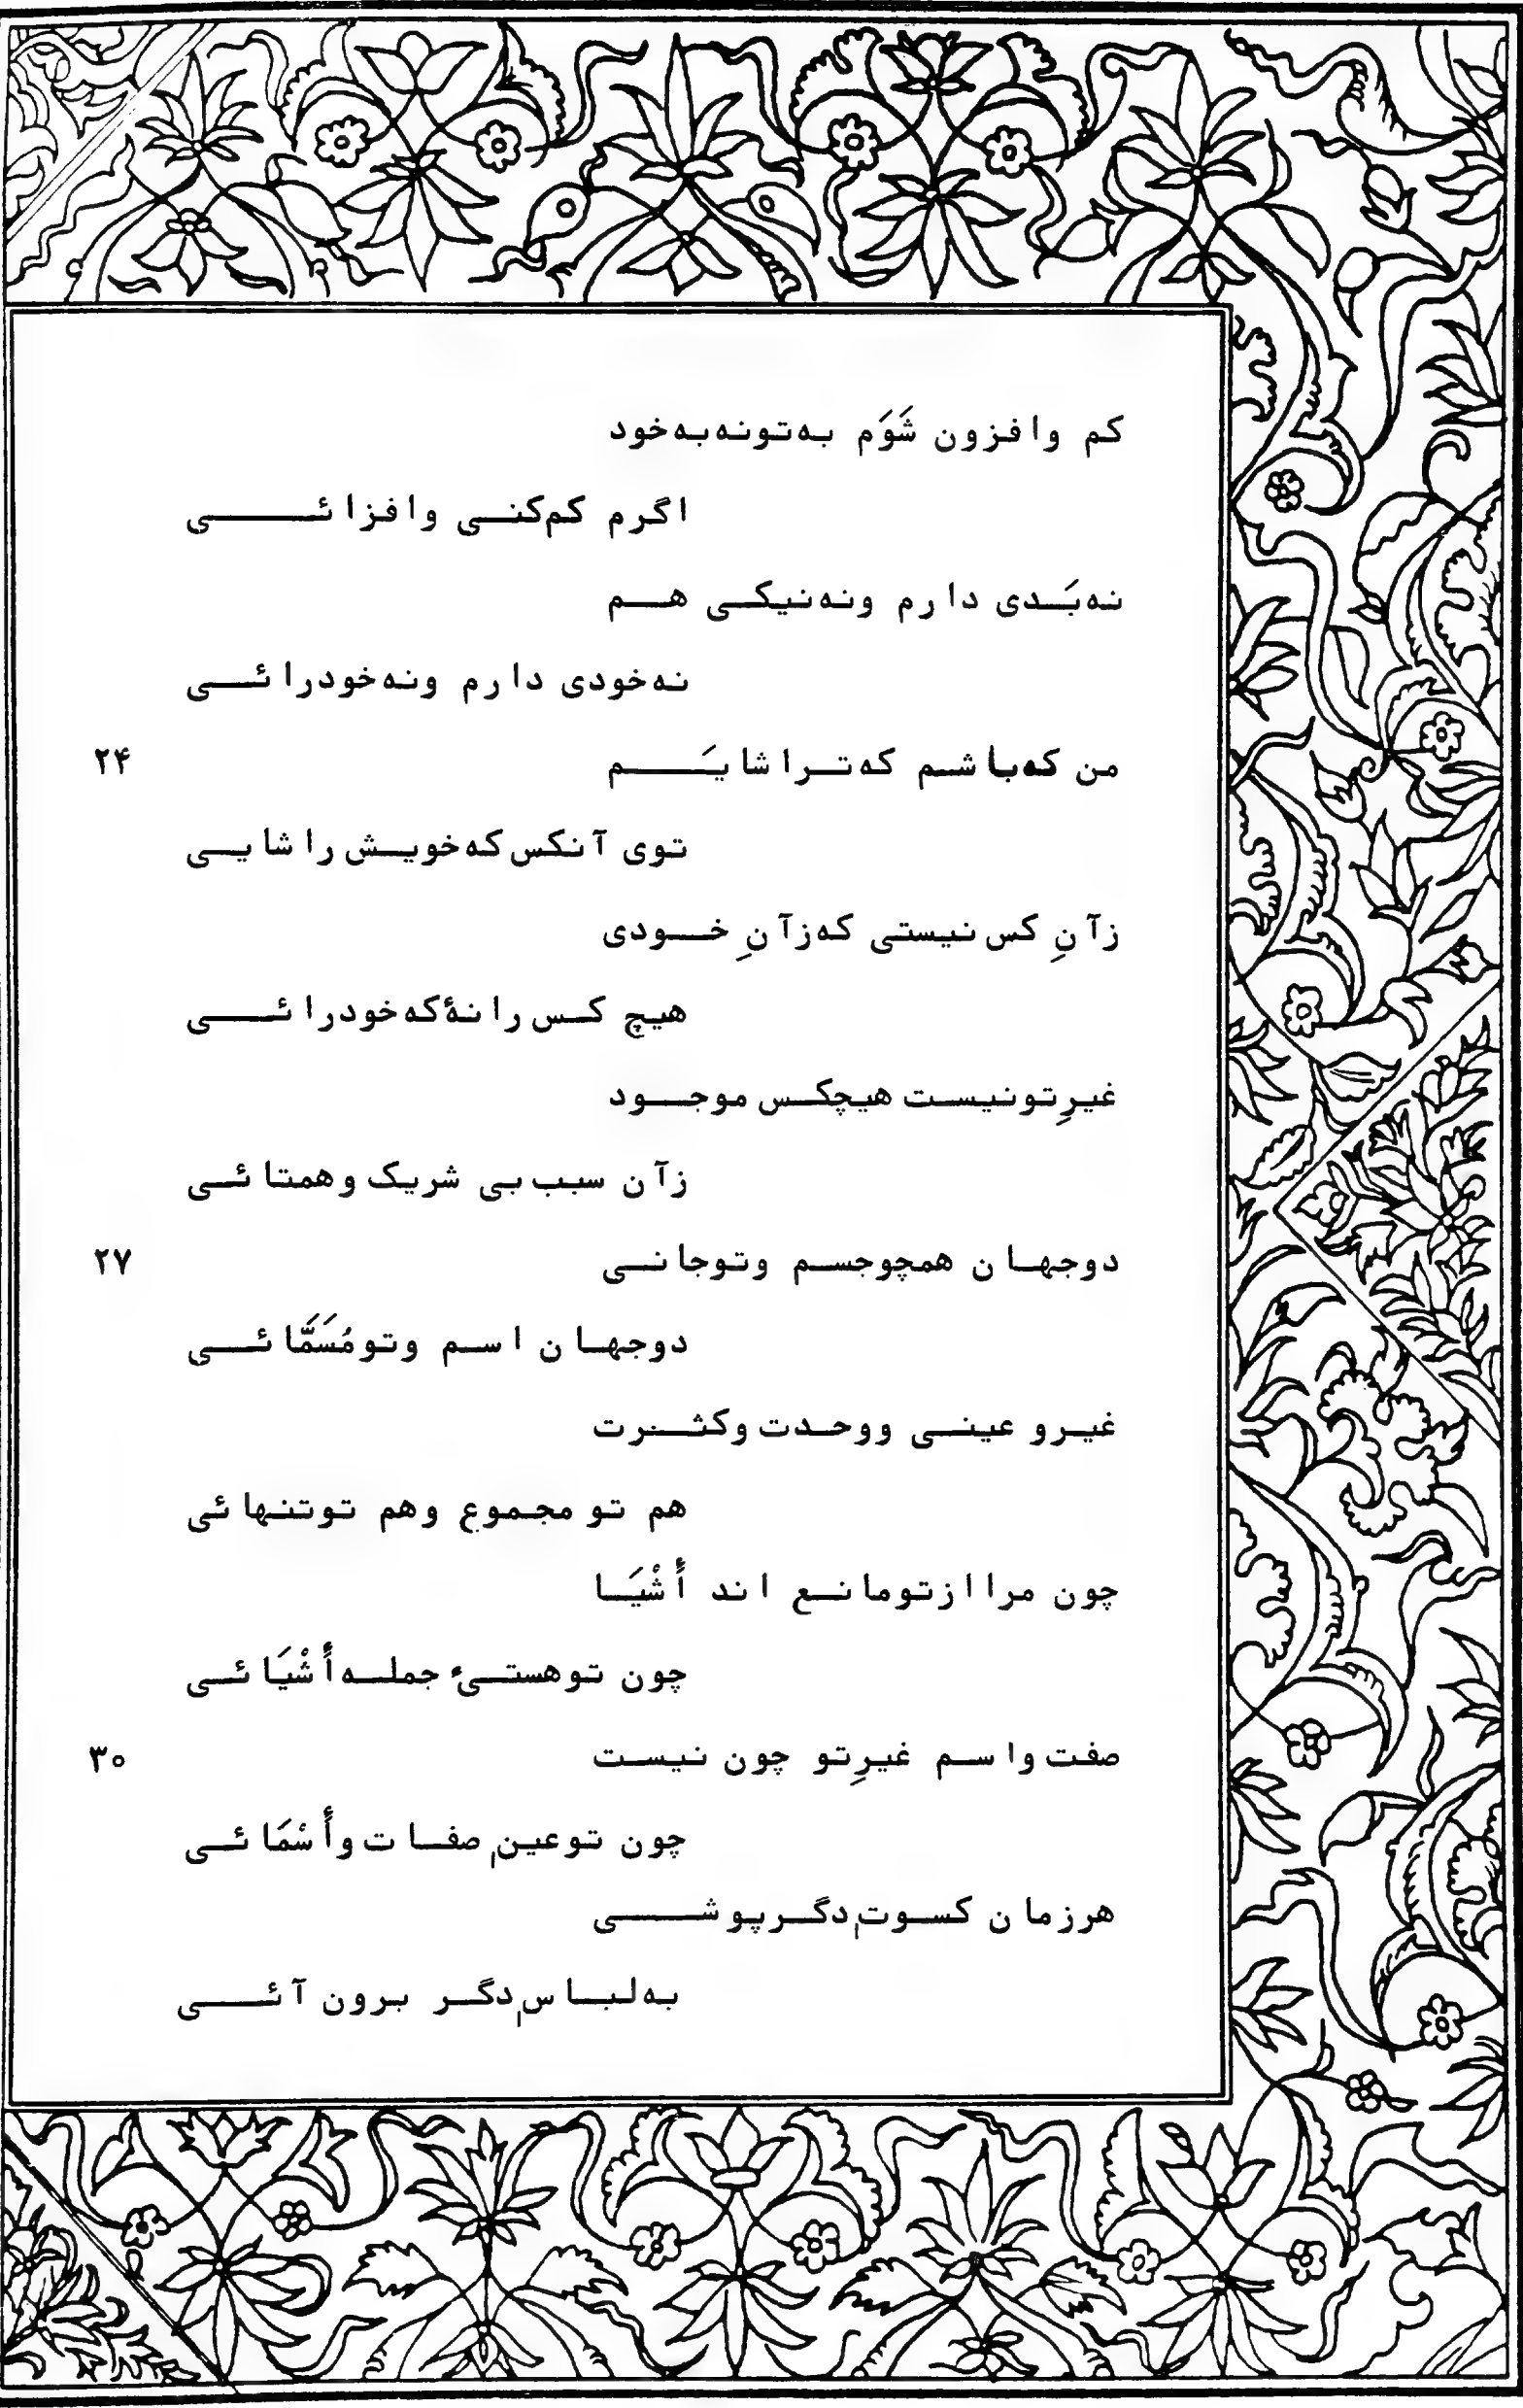 کم وافزون شَوَم به‌تونه‌به‌خود
اگرم کم‌کنی وافزائی
نه‌بَدی دارم ونه‌نیکی هم
نه‌خودی دارم ونه‌خودرائی
من که‌باشم که‌ترا شایَم ۲۴
توی آنکس‌که‌خویش را شایی
زآنِ کس نیستی که‌زآنِ خودی
هیچ کس رانهٔ‌که‌خودرائی
غیرِتونیست هیچکس موجود
زآن سبب بی شریک وهمتائی
دوجهان همچوجسم وتوجانی ۲۷
دوجهان اسم وتومُسَمَّائی
غیرو عینی ووحدت وکثرت
هم تو مجموع وهم توتنهائی
چون مراازتومانع اند أَشْیَا
چون توهستیء جمله‌أَشْیَائی
صفت واسم غیرِتو چون نیست ۳۰
چون توعینِ صفات وأَسْمَائی
هرزمان کسوتِ دگرپوشی
به‌لباسِ دگر برون آئی